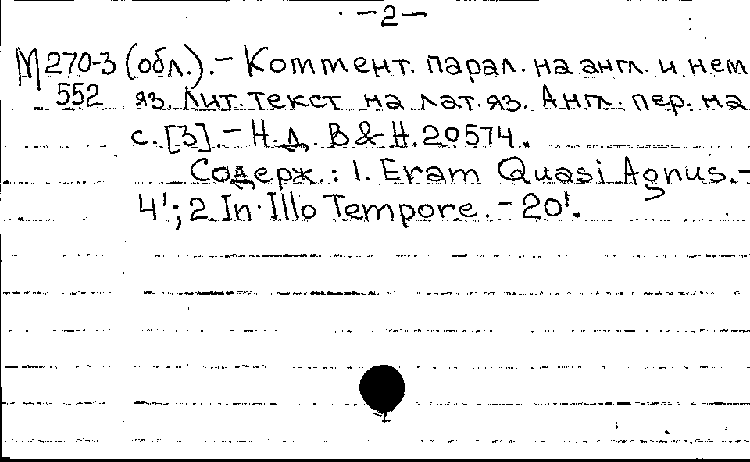 -2-
М270-3 (обл.).- Коммент. парал. на англ. и нем
552 яз. Лит. текст на лат. яз. Англ. пер. на
с. [3].- Н.д. B&H. 20574.
Содерж.: 1. Eram Quasi Agnus.-
4'; 2. In Illo Tempore.- 20'.